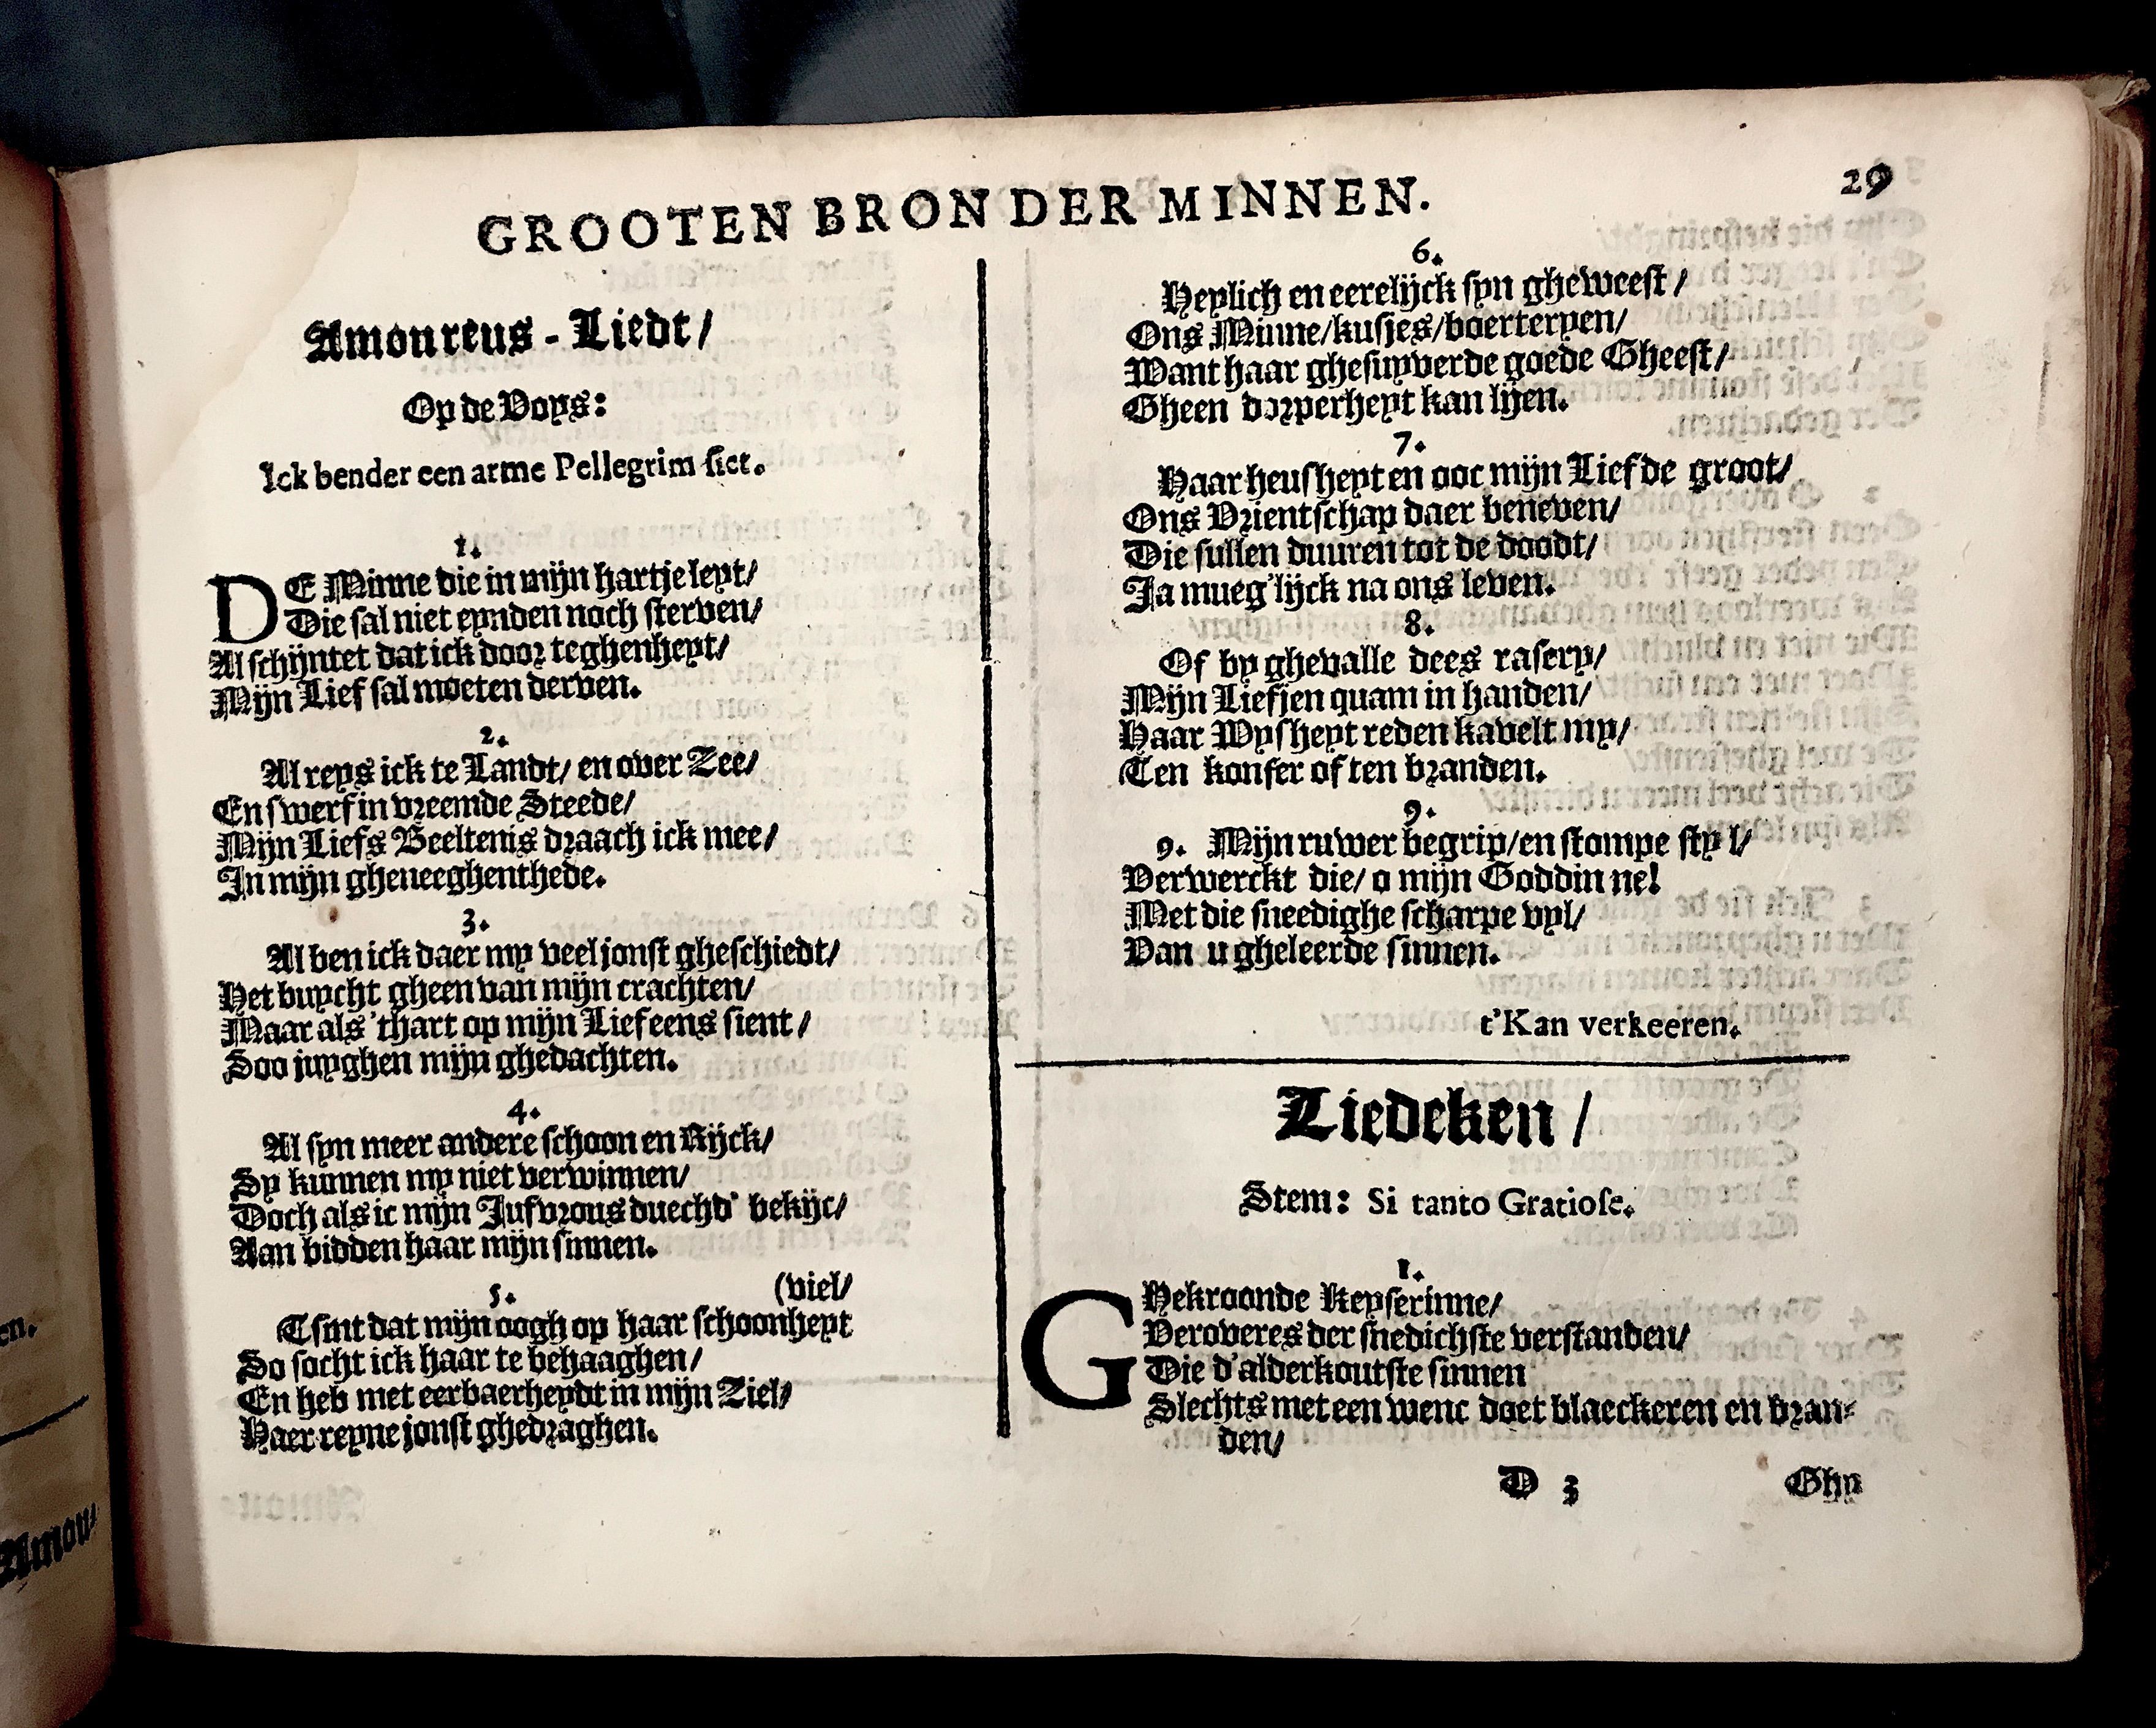 GROOTEN BRON DER MINNEN.
29
Amoureus-Liedt/
Op de Voys:
Ick bender een arme Pellegrim siet.
1.
DE Minne die in mijn hartje leyt/
Die sal niet eynden noch sterven/
Al schijntet dat ick door teghenheyt/
Mijn Lief sal moeten derven.
2.
Al reys ick te Landt/ en over Zee/
En swerf in vreemde Steede/
Mijn Liefs Beeltenis draach ick mee/
In mijn gheneeghenthede.
3.
Al ben ick daer my veel jonst gheschiedt/
Het buycht gheen van mijn crachten/
Maar als 'thart op mijn Lief eens sient/
Soo juyghen mijn ghedachten.
4.
Al syn meer andere schoon en Rijck/
Sy kunnen my niet verwinnen/
Doch als ic mijn Jufvrous duechd' bekijc/
Aan bidden haar mijn sinnen.
5.
(viel/
Tsint dat mijn oogh op haar schoonheyt
So socht ick haar te behaaghen/
En heb met eerbaerheydt in mijn Ziel/
Haer reyne jonst ghedraghen.
6.
Heylich en eerelijck syn gheweest/
Ons Minne/kusjes/boerteryen/
Want haar ghesuyverde goede Gheest/
Gheen dorperheyt kan lijen.
7.
Haar heusheyt en ooc mijn Liefde groot/
Ons Vrientschap daer beneven/
Die sullen duuren tot de doodt/
Ja mueg'lijck na ons leven.
8.
Of by ghevalle dees rasery/
Mijn Liefjen quam in handen/
Haar Wysheyt reden kavelt my/
Ten konfer of ten branden.
9.
9. Mijn ruwer begrip/en stompe styl/
Verwerckt die/ o mijn Goddinne!
Met die sneedighe scharpe vyl/
Van u gheleerde sinnen.
t'Kan verkeeren.
Liedeken/
Stem: Si tanto Gratiose.
1.
GHekroonde Keyserinne/
Veroveres der snedichste verstanden/
Die d'alderkoutste sinnen
Slechts met een wenc doet blaeckeren en bran-
den/
D 3
Ghy
en.
Amou-